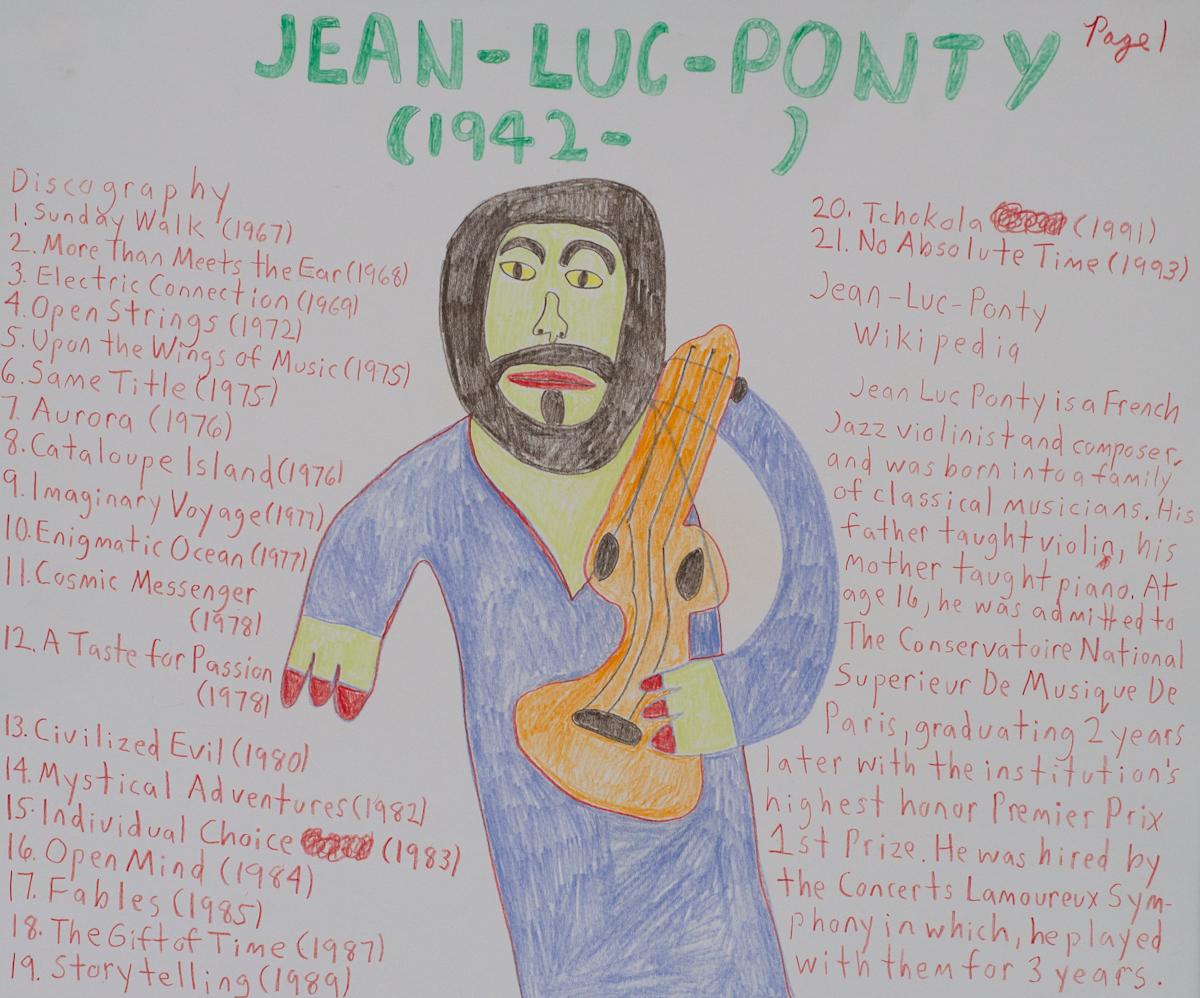 JEAN-LUC-PONTY
Page 1
(1942-      )
Discography
1. Sunday Walk (1967)
2. More Than Meets the Ear (1968)
3. Electric Connection (1969)
4. Open Strings (1972)
5. Upon the Wings of Music (1975)
6. Same Title (1975)
7. Aurora (1976)
8. Cataloupe Island (1976)
9. Imaginary Voyage (1977)
10. Enigmatic Ocean (1977)
11. Cosmic Messenger
(1978)
12. A Taste for Passion
(1978)
13. Civilized Evil (1980)
14. Mystical Adventures (1982)
15. Individual Choice (1983)
16. Open Mind (1984)
17. Fables (1985)
18. The Gift of Time (1987)
19. Storytelling (1989)
20. Tchokola (1991)
21. No Absolute Time (1993)
Jean-Luc-Ponty
Wikipedia
Jean Luc Ponty is a French
Jazz violinist and composer,
and was born into a family
of classical musicians. His
father taught violin, his
mother taught piano. At
age 16, he was admitted to
The Conservatoire National
Superieur De Musique De
Paris, graduating 2 years
later with the institution's
highest honor Premier Prix
1st Prize. He was hired by
the Concerts Lamoureux Sym-
phony in which, he played
with them for 3 years.